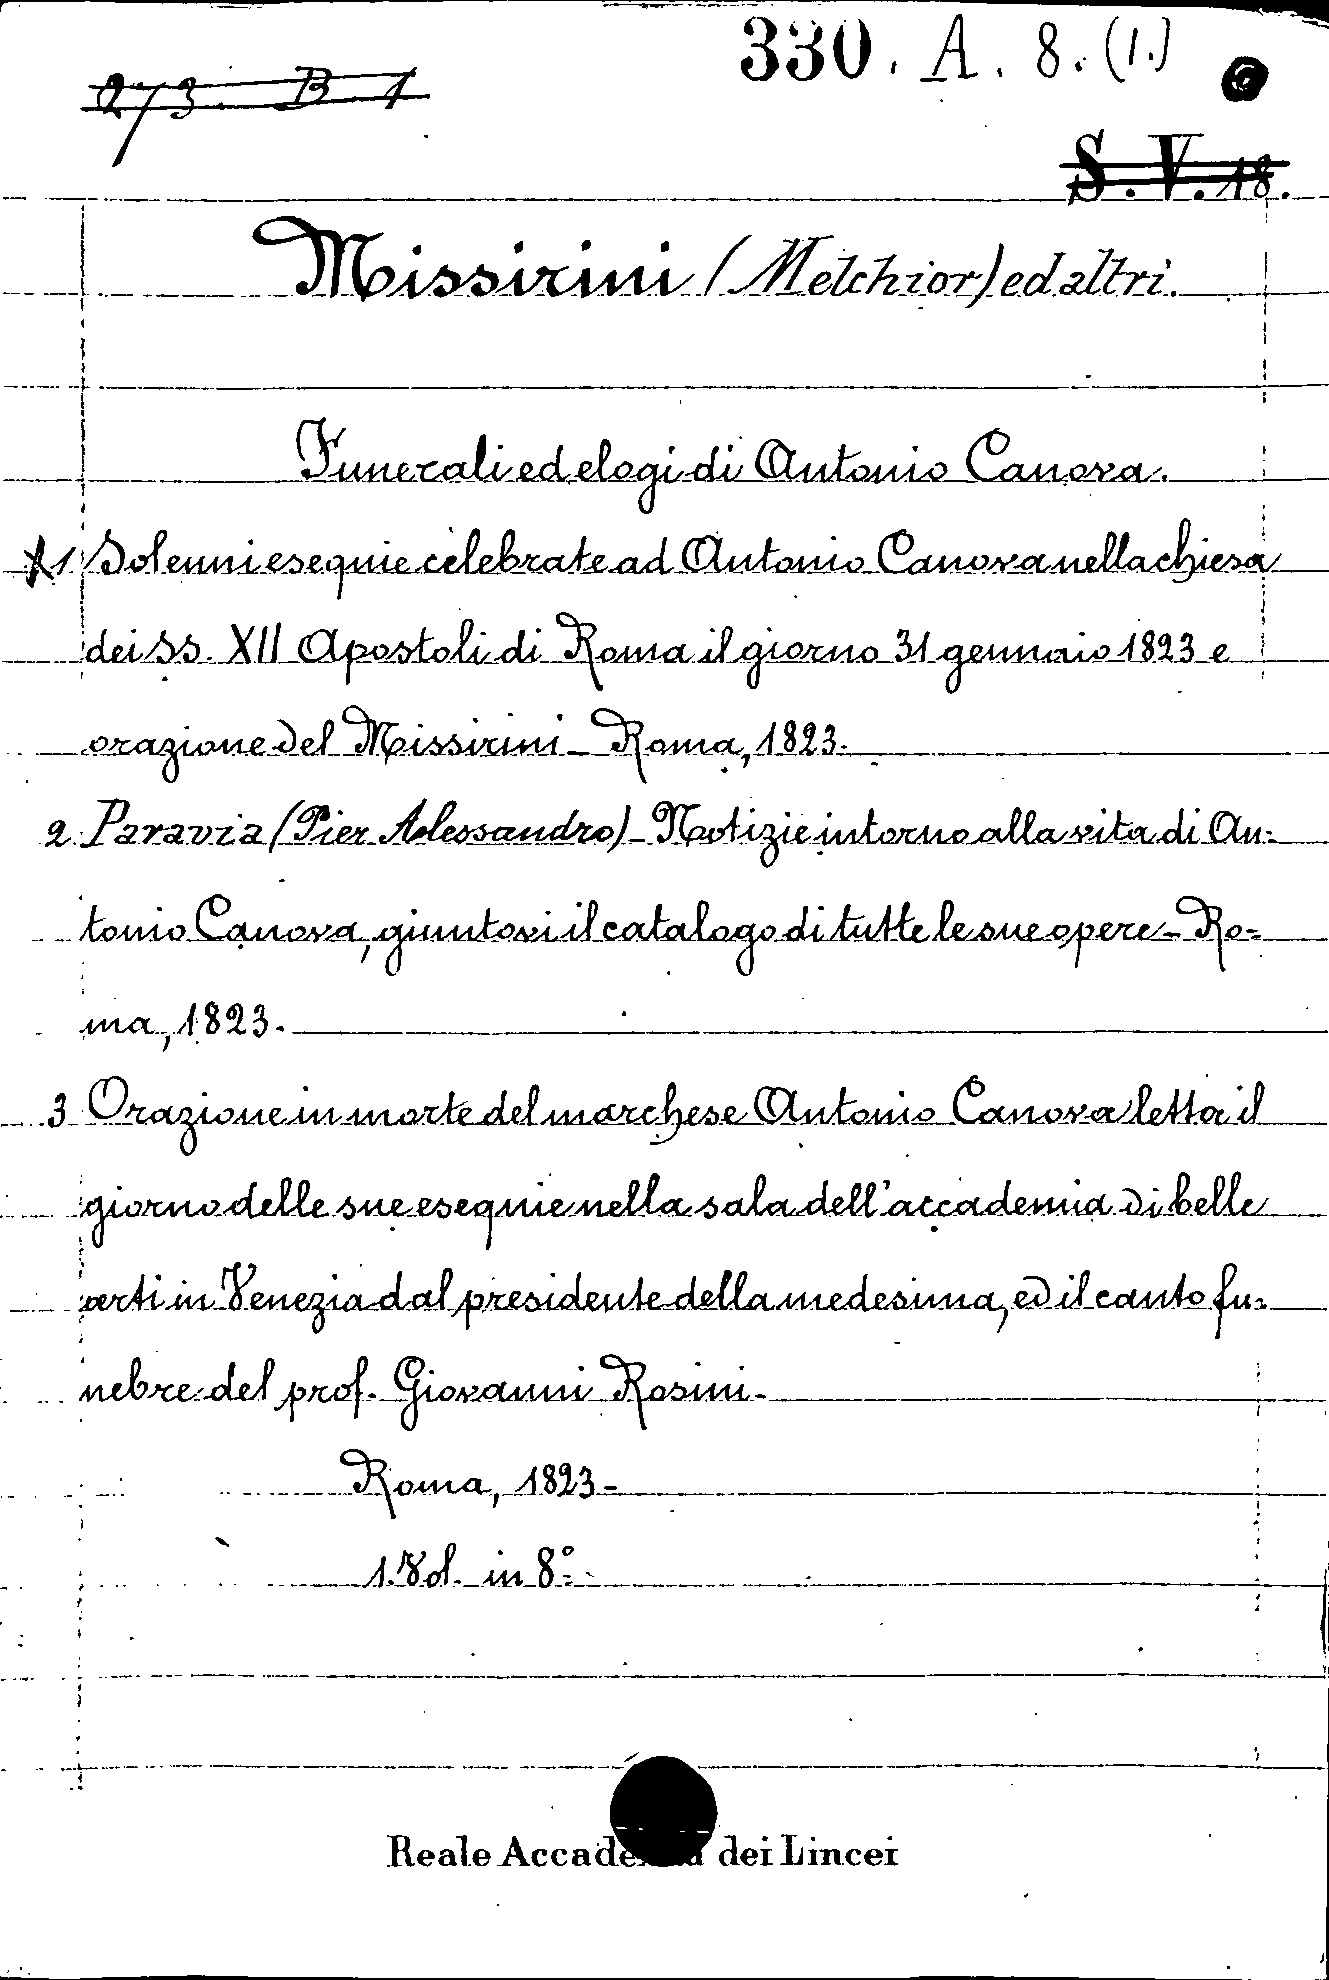 330. A. 8. (1.)
273 B 1
S. V. 18.
Missirini (Melchior) ed altri.
Funerali ed elogi di Antonio Canova.
1 Solenni esequie celebrate ad Antonio Canova nella chiesa
dei SS. XII Apostoli di Roma il giorno 31 gennaio 1823 e
orazione del Missirini - Roma, 1823.
2 Paravia (Pier Alessandro) - Notizie intorno alla vita di An=
tonio Canova, giuntovi il catalogo di tutte le sue opere - Ro=
ma, 1823.
3 Orazione in morte del marchese Antonio Canova letta il
giorno delle sue esequie nella sala dell'accademia di belle
arti in Venezia dal presidente della medesima, ed il canto fu=
nebre del prof. Giovanni Rosini -
Roma, 1823 -
1. Vol. in 8°
Reale Accademia dei Lincei